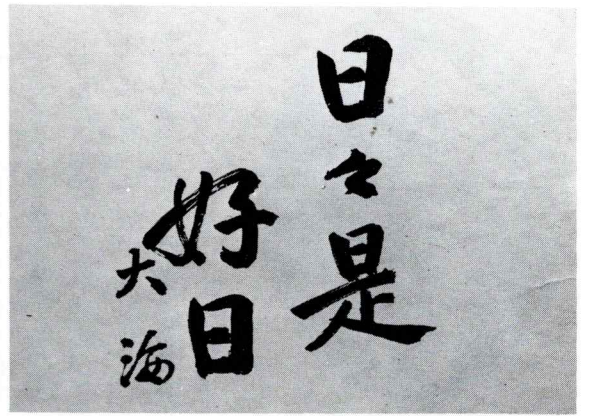 日々是
好日
大海